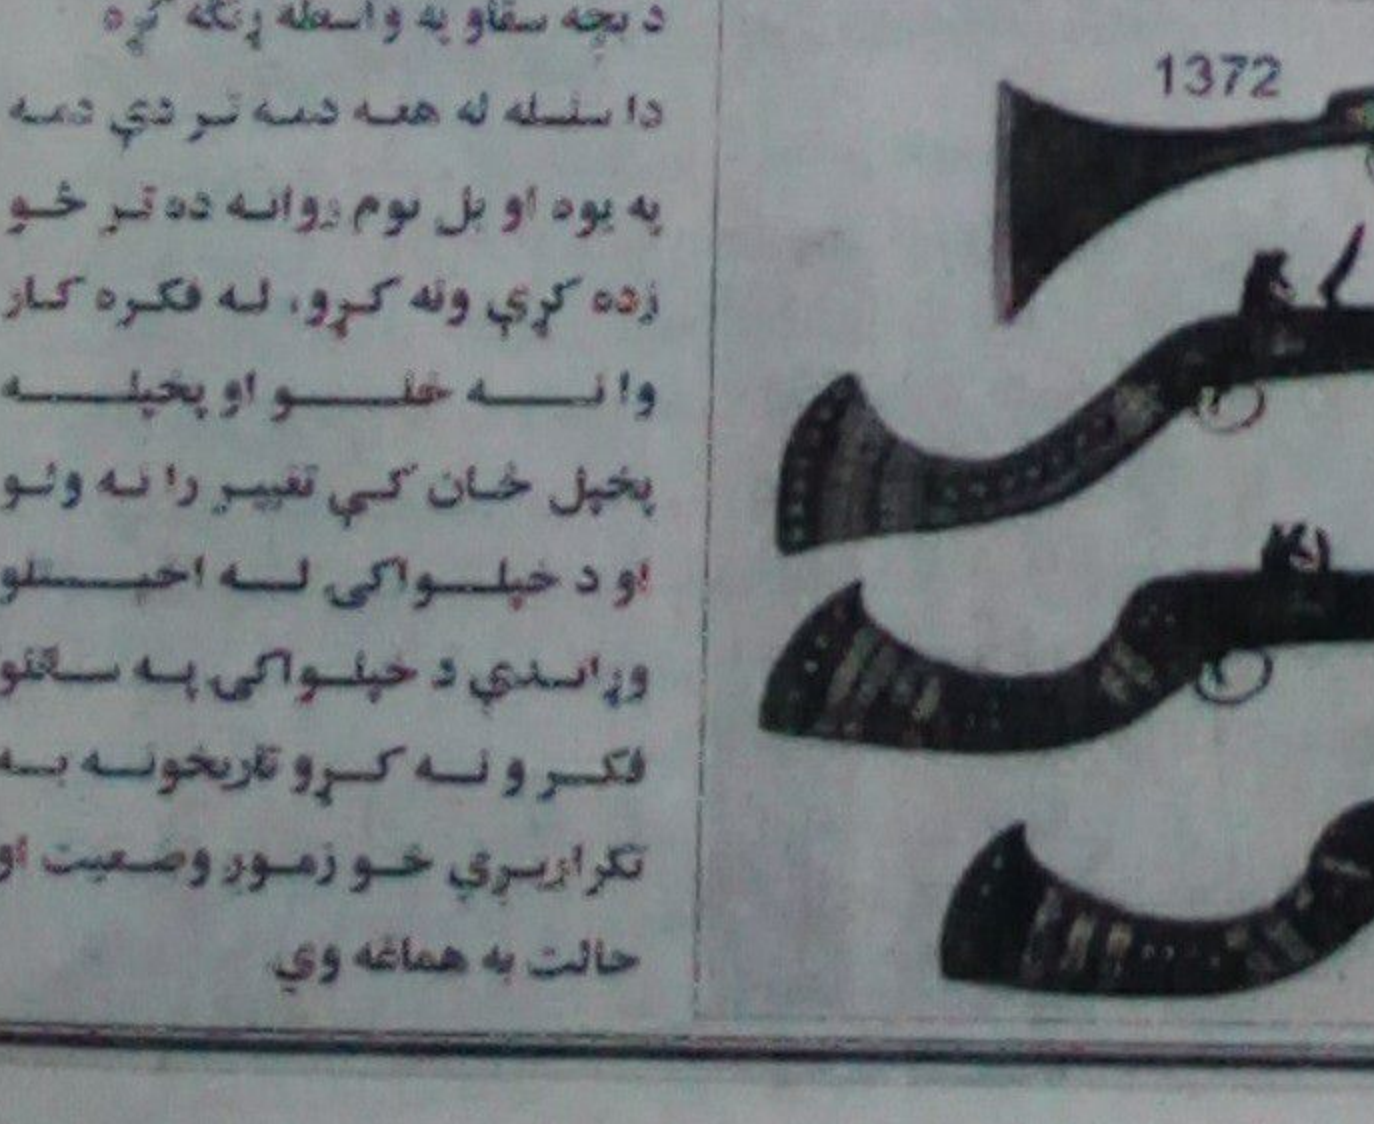 د بچه سقاو په واسطه ړنګه کړه
دا سلسله له هغه دمه تر دې دمه
په یوه او بل نوم روانه ده تر څو
زده کړې ونه کړو، له فکره کار
وا نه خلو او پخپله
پخپل ځان کې تغییر را نه ولو
او د خپلواکی له اخستلو
وړاندې د خپلواکی په ساتلو
فکر و نه کړو تاریخونه به
تکراریږي خو زموږ وضعیت او
حالت به هماغه وي
1372